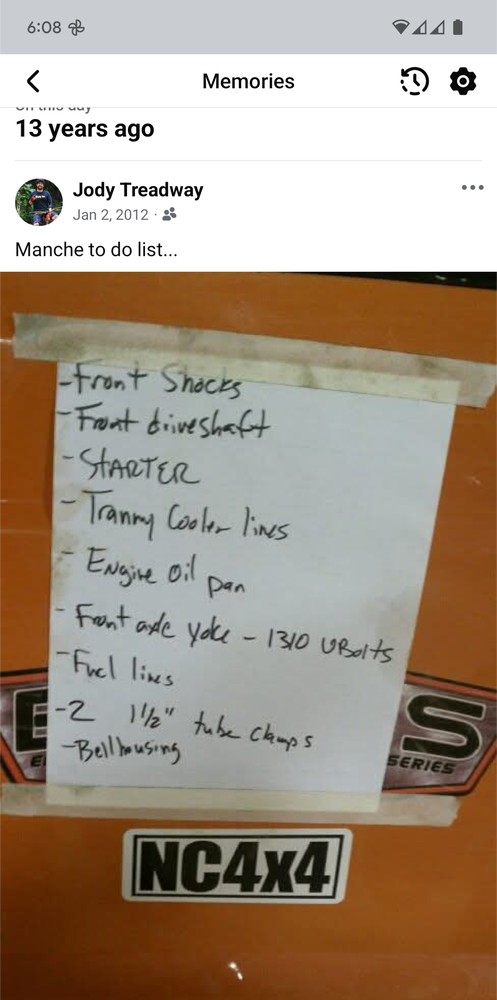 6:08
Memories
On this day
13 years ago
Jody Treadway
Jan 2, 2012 ·
Manche to do list...
-Front Shocks
-Front driveshaft
-STARTER
-Tranny Cooler lines
-Engine Oil pan
-Front axle yoke - 1310 UBolts
-Fuel lines
-2 1½" tube clamps
-Bellhousing
S
SERIES
NC4x4